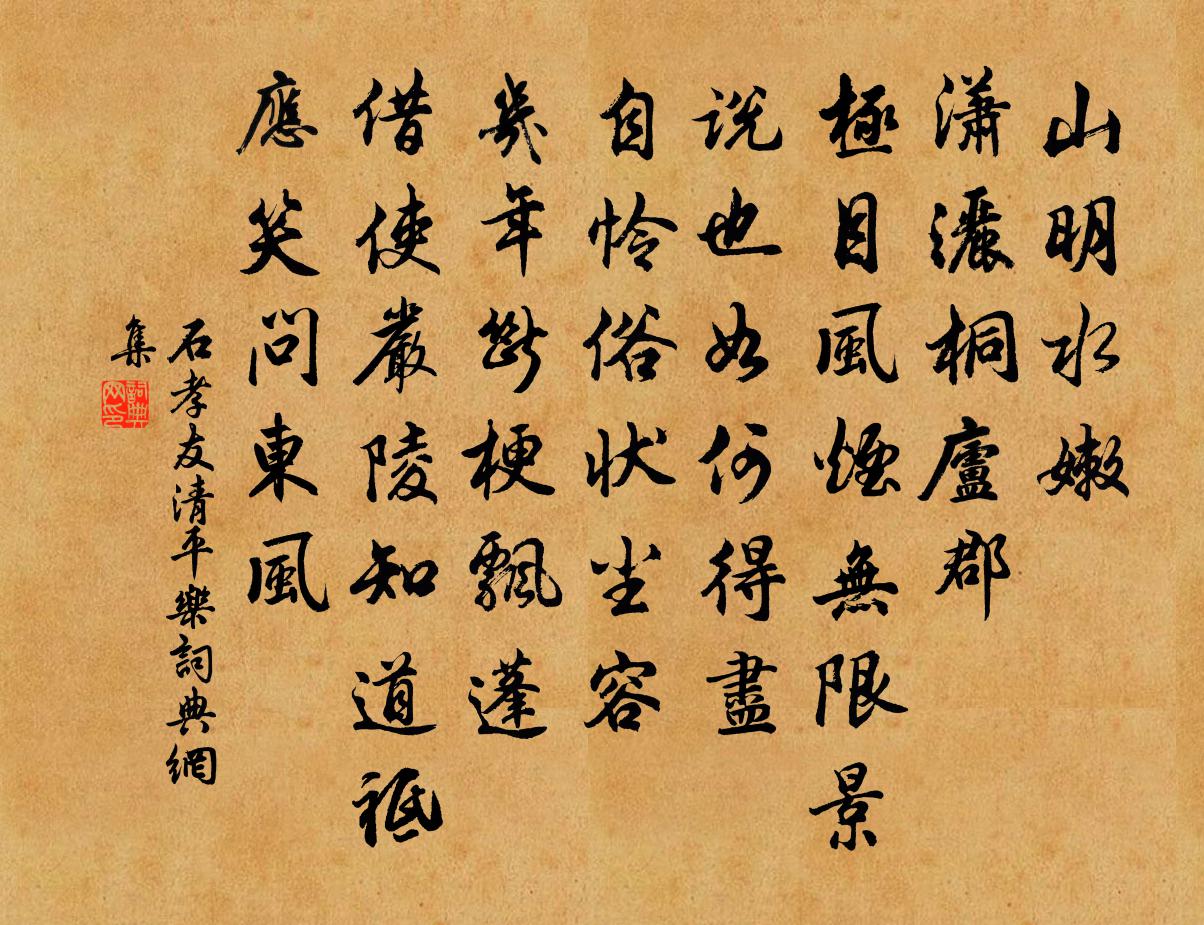 山明水嫩
瀟灑桐廬郡
極目風煙無限景
說也如何得盡
自憐俗狀塵容
幾年斷梗飄蓬
借使嚴陵知道
祗應笑問東風
石孝友清平樂詞典網
集
詞典
网印